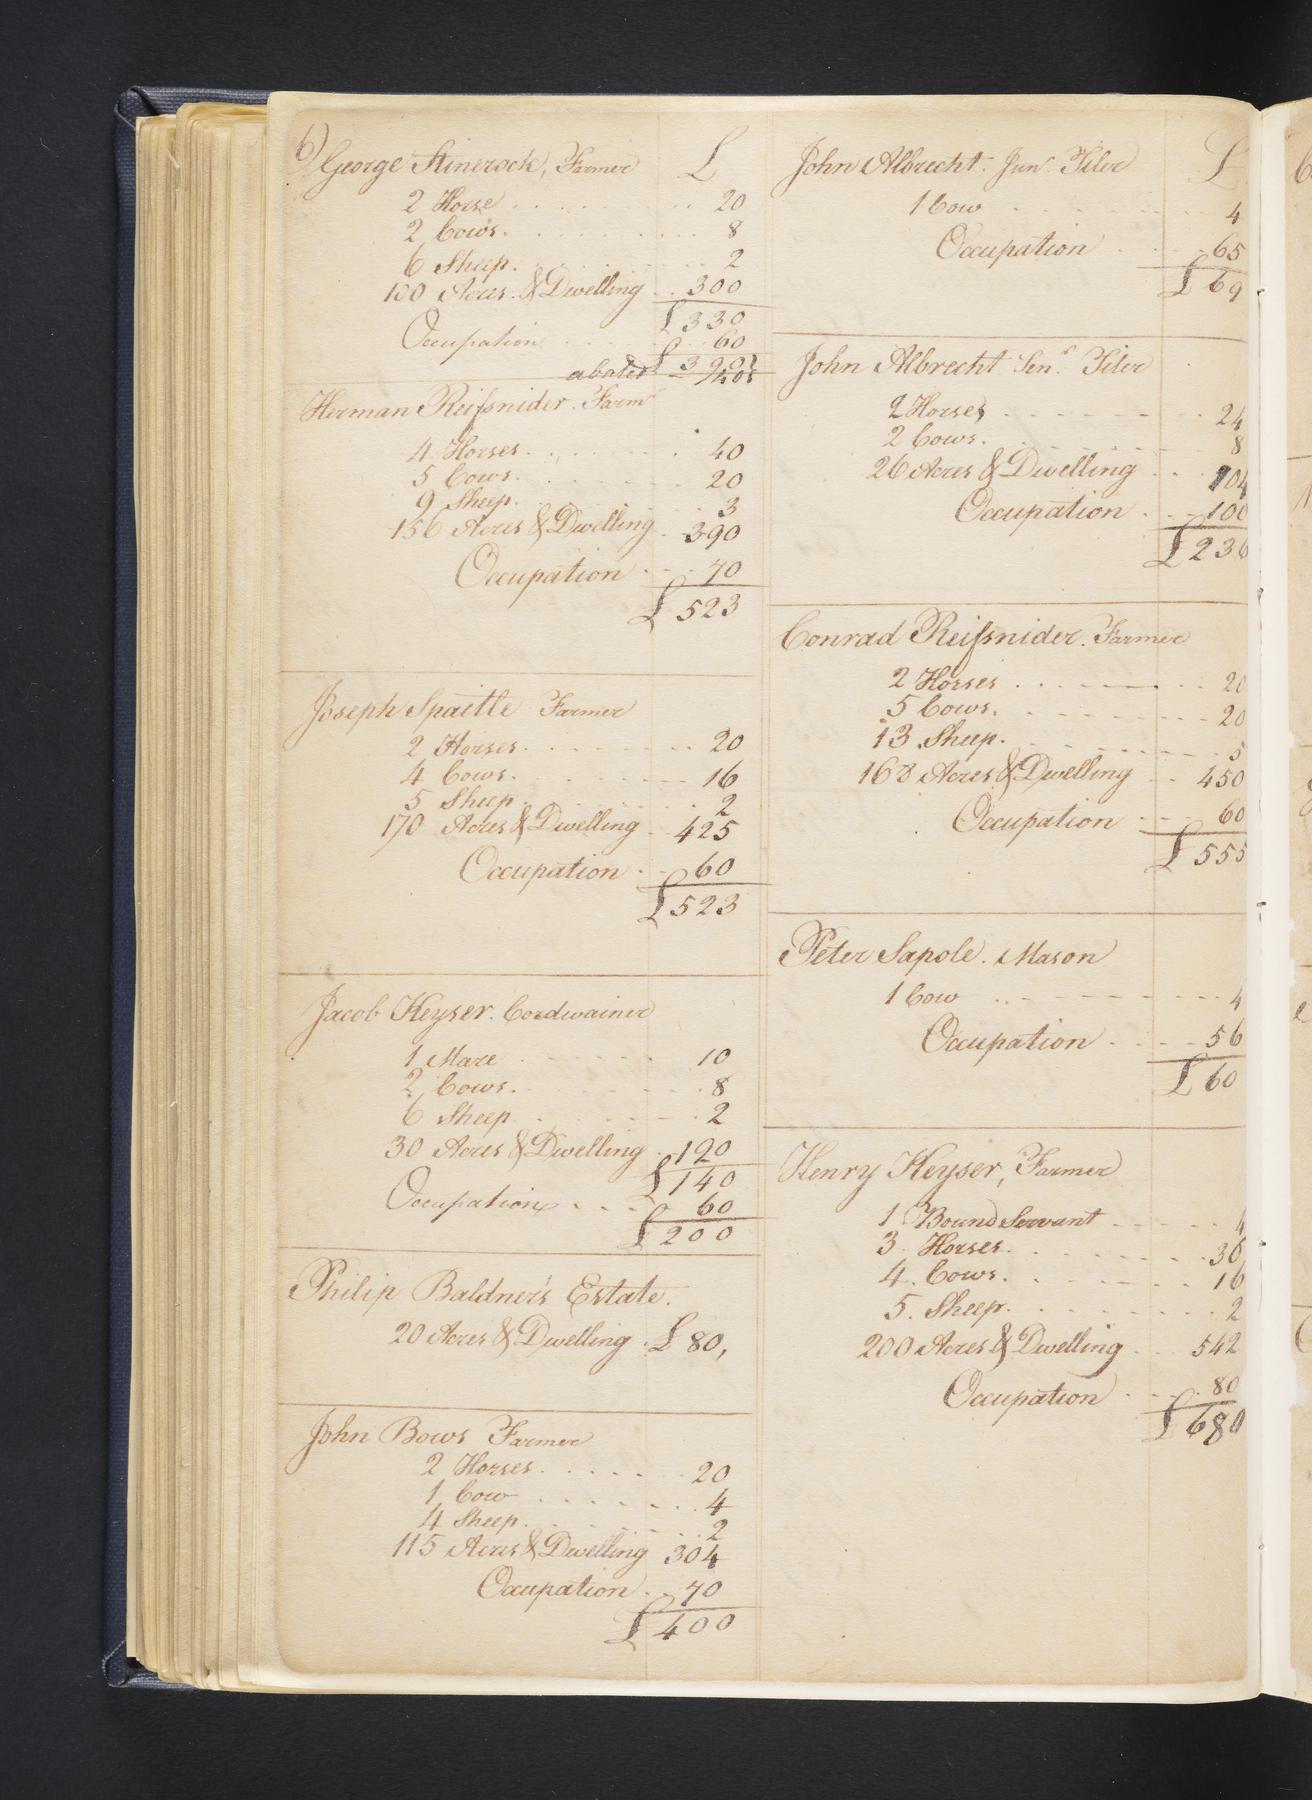 6) George Stinerock, Farmer £
2 Horse 20
2 Cows. 8
6 Sheep. 2
100 Acres & Dwelling 300
£330
Occupation 60
£ 390
abated
Herman Reifsnider. Farmr
4 Horses 40
5 Cows. 20
9 Sheep. 3
156 Acres & Dwelling 390
Occupation 70
£523
Joseph Spaitle Farmer
2 Horses. 20
4 Cows. 16
5 Sheep 2
170 Acres & Dwelling 425
Occupation 60
£523
Jacob Keyser. Cordwainer
1 Mare 10
2 Cows. 8
6 Sheep 2
30 Acres & Dwelling 120
£140
Occupation 60
£200
Philip Baldner's Estate.
20 Acres & Dwelling £80,
John Bows Farmer
2 Horses. 20
1 Cow 4
4 Sheep. 2
115 Acres & Dwelling 304
Occupation 70
£400
John Albrecht Junr Tiler £
1 Cow 4
Occupation 65
£69
John Albrecht Senr Tiler
2 Horses 24
2 Cows. 8
26 Acres & Dwelling 104
Occupation 100
£236
Conrad Reifsnider. Farmer
2 Horses 20
5 Cows. 20
13 Sheep. 5
168 Acres & Dwelling 450
Occupation 60
£555
Peter Sapole. Mason
1 Cow 4
Occupation 56
£60
Henry Keyser, Farmer
1 Bound Servant 4
3 Horses. 36
4. Cows. 16
5. Sheep. 2
200 Acres & Dwelling 542
Occupation 80
£680